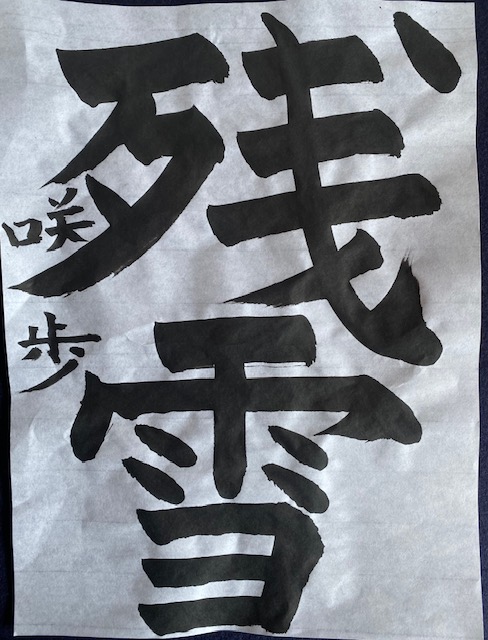 残雪
咲歩